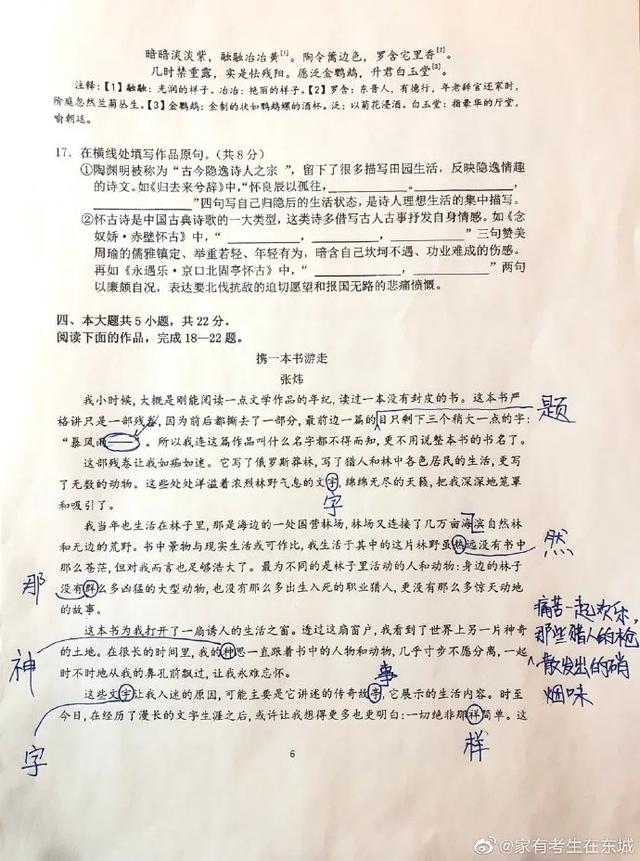 暗暗淡淡紫，融融冶冶黄[1]。陶令篱边色，罗含宅里香[2]。
几时禁重露，实是怯残阳。愿泛金鹦鹉，升君白玉堂[3]。
注释：【1】融融：光润的样子。冶冶：艳丽的样子。【2】罗含：东晋人，有德行，年老辞官还家时，
阶庭忽然兰菊丛生。【3】金鹦鹉：金制的状如鹦鹉螺的酒杯。泛：以菊花浸酒。白玉堂：指豪华的厅堂，
喻朝廷。
17. 在横线处填写作品原句。（共8分）
①陶渊明被称为“古今隐逸诗人之宗”，留下了很多描写田园生活，反映隐逸情趣
的诗文。如《归去来兮辞》中，“怀良辰以孤往，________。________，
________”四句写自己归隐后的生活状态，是诗人理想生活的集中描写。
②怀古诗是中国古典诗歌的一大类型，这类诗多借写古人古事抒发自身情感。如《念
奴娇·赤壁怀古》中，“________，________，________”三句赞美
周瑜的儒雅镇定、举重若轻、年轻有为，暗含自己坎坷不遇、功业难成的伤感。
再如《永遇乐·京口北固亭怀古》中，“________，________”两句
以廉颇自况，表达要北伐抗敌的迫切愿望和报国无路的悲痛愤慨。
四、本大题共5小题，共22分。
阅读下面的作品，完成18—22题。
携一本书游走
张炜
我小时候，大概是刚能阅读一点文学作品的年纪，读过一本没有封皮的书。这本书严
格讲只是一部残卷，因为前后都撕去了一部分，最前边一篇的目只剩下三个稍大一点的字：
题
“暴风雨——。所以我连这篇作品叫什么名字都不得而知，更不用说整本书的书名了。
这部残卷让我如痴如迷。它写了俄罗斯莽林，写了猎人和林中各色居民的生活，更写
了无数的动物。这些处处洋溢着浓烈林野气息的文字，绵绵无尽的天籁，把我深深地笼罩
字
和吸引了。
我当年也生活在林子里，那是海边的一处国营林场，林场又连接了几万亩海滨自然林
和无边的荒野。书中景物与现实生活或可作比，我生活于其中的这片林野虽热远没有书中
然
那么苍茫，但对我而言也足够浩大了。最为不同的是林子里活动的人和动物：身边的林子
没有群么多凶猛的大型动物，也没有那么多出生入死的职业猎人，更没有那么多惊天动地
那
的故事。
这本书为我打开了一扇诱人的生活之窗。透过这扇窗户，我看到了世界上另一片神奇
的土地。在很长的时间里，我的种思一直跟着书中的人物和动物，几乎寸步不愿分离，一起
神
痛苦一起欢乐，
那些猎人的枪
散发出的硝
烟味
时不时地从我的鼻孔前飘过，让我永难忘怀。
这些文字让我入迷的原因，可能主要是它讲述的传奇故字，它展示的生活内容。时至
字
事
今日，在经历了漫长的文字生涯之后，或许让我想得更多也更明白：一切绝非那祥简单。这
样
6
@家有考生在东城